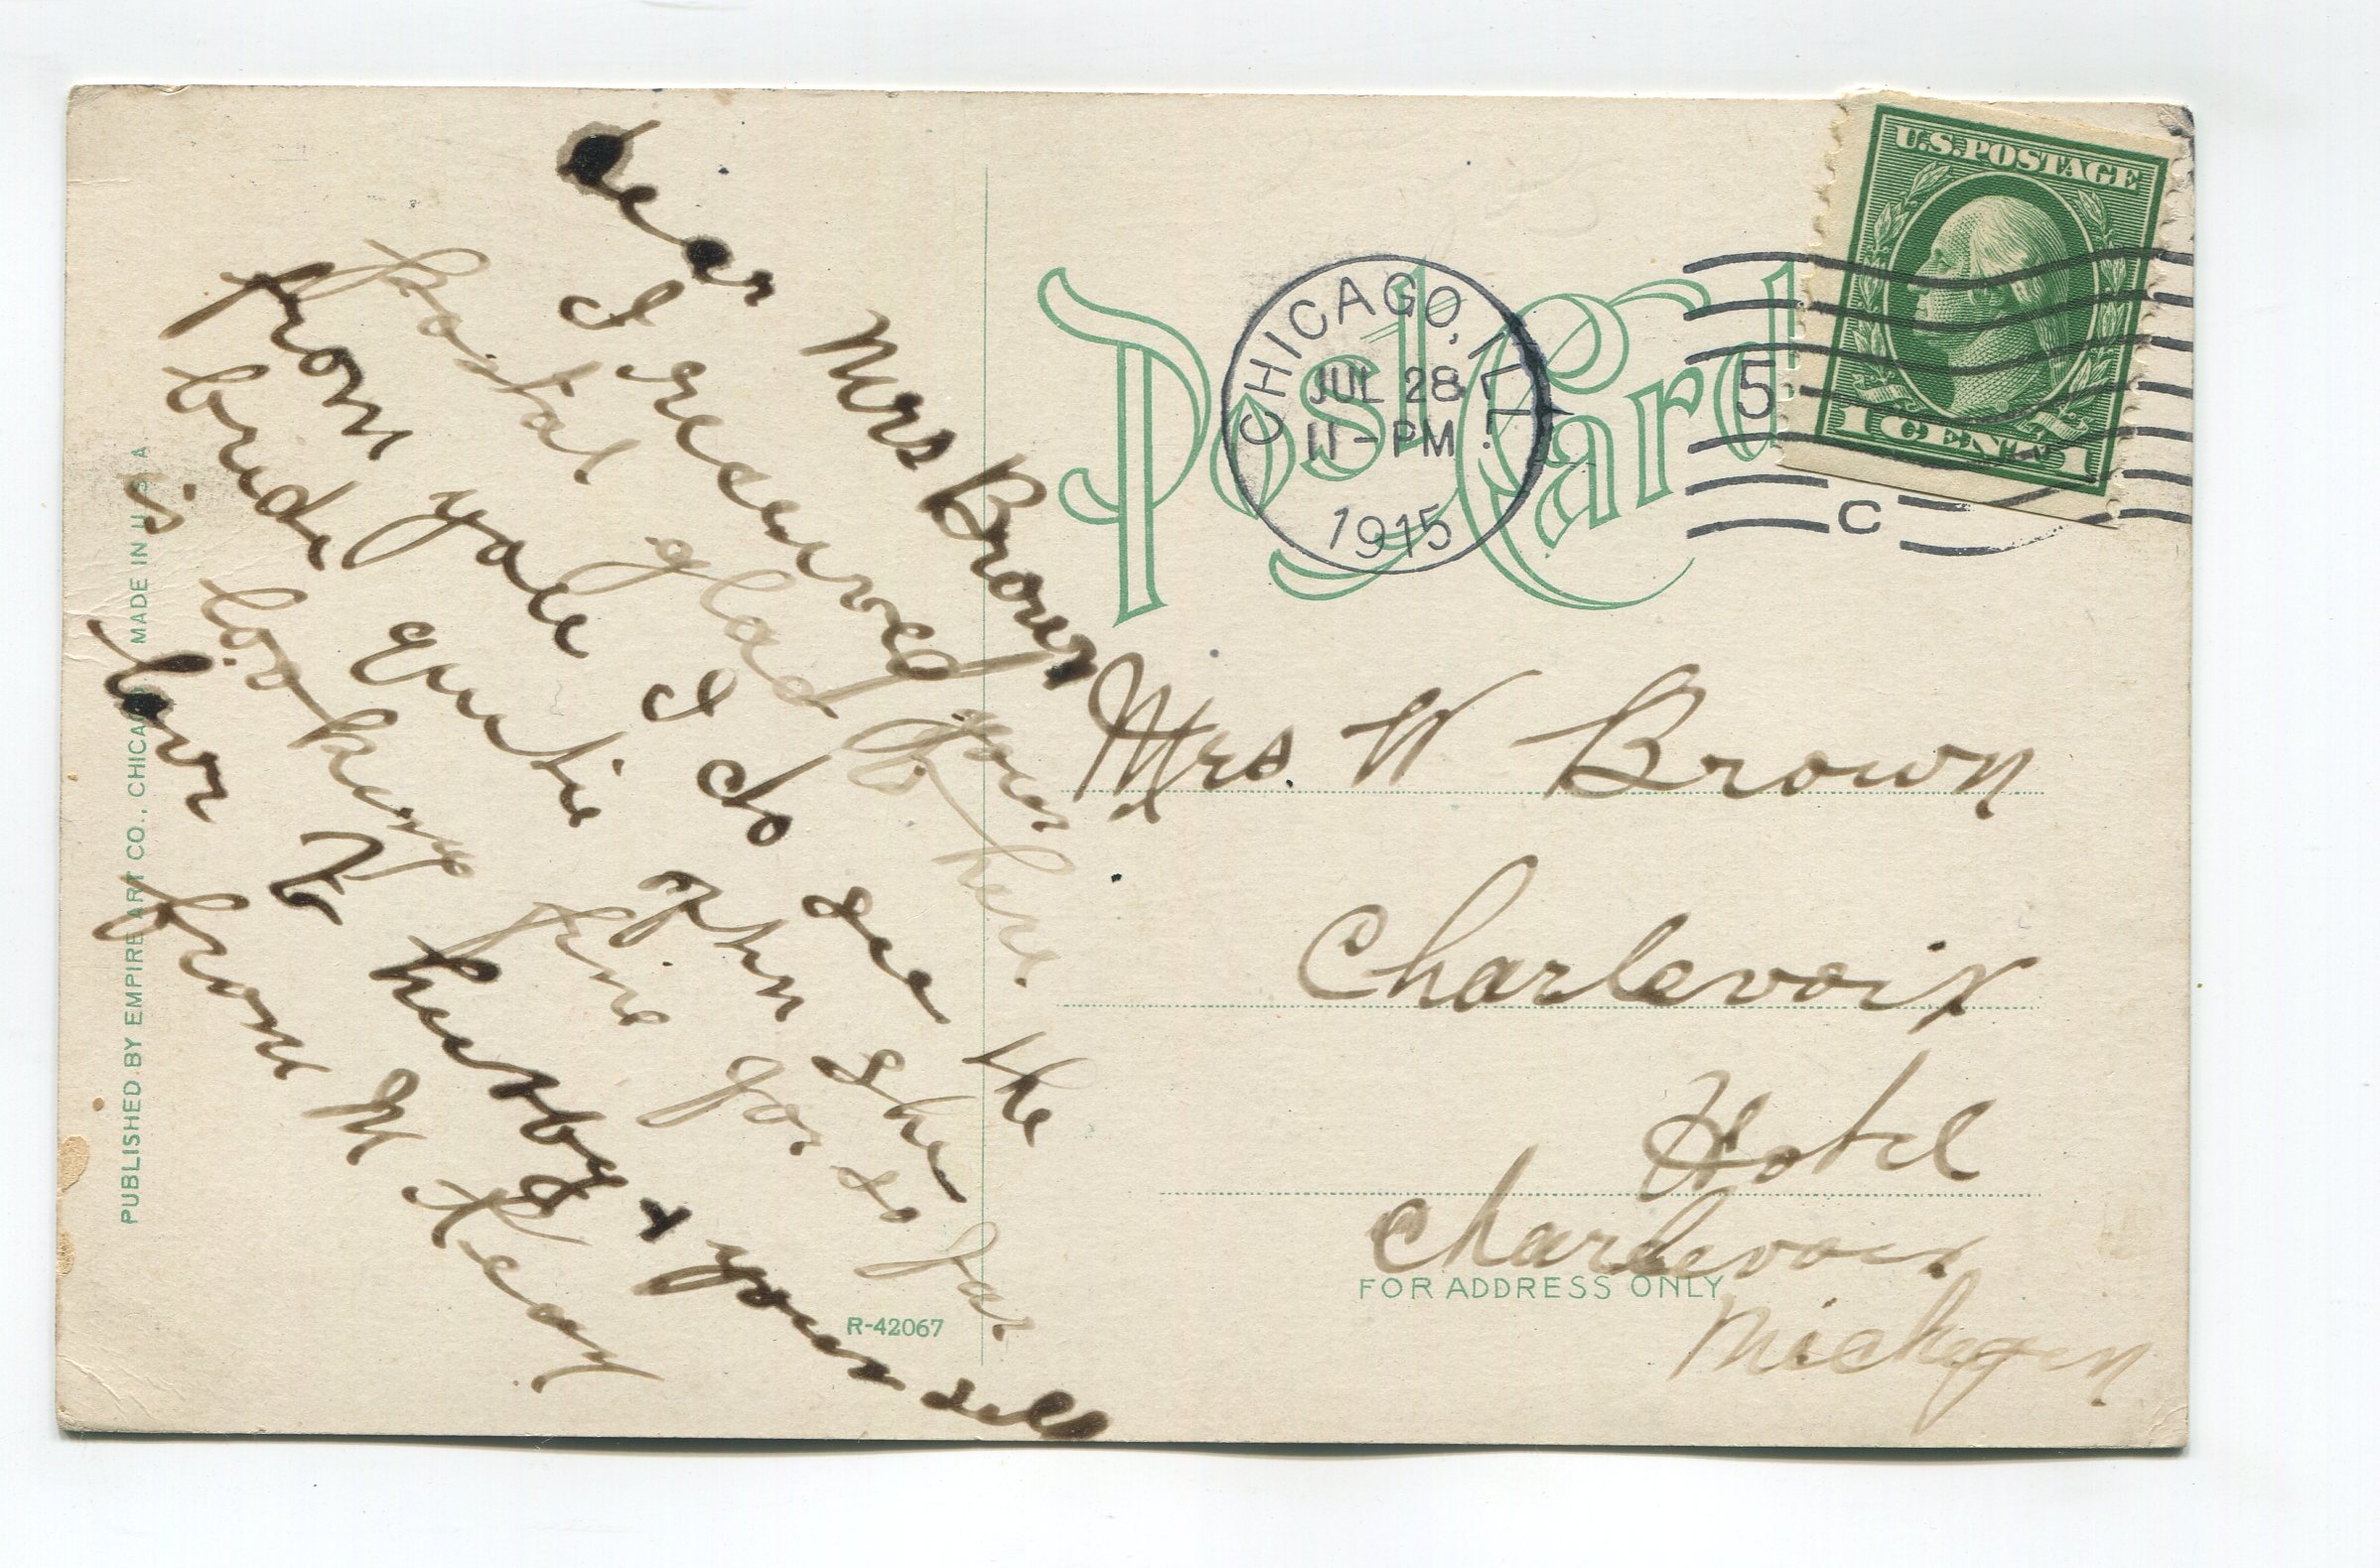 Dear Mrs Brown
I receeived your
postal glad to here
from I do see the
bride quite oftn she
is looking fine for so far
to hubby & your sell
from M
PUBLISHED BY EMPIRE ART CO., CHICAGO MADE IN U.S.A.
R-42067
Post Card
CHICAGO, ILL.
JUL 28
11-PM
1915
5
C
U.S. POSTAGE
1 CENT 1
Mrs. W Brown
Charlevoix
Hotel
Charlevoix
FOR ADDRESS ONLY
Michigen